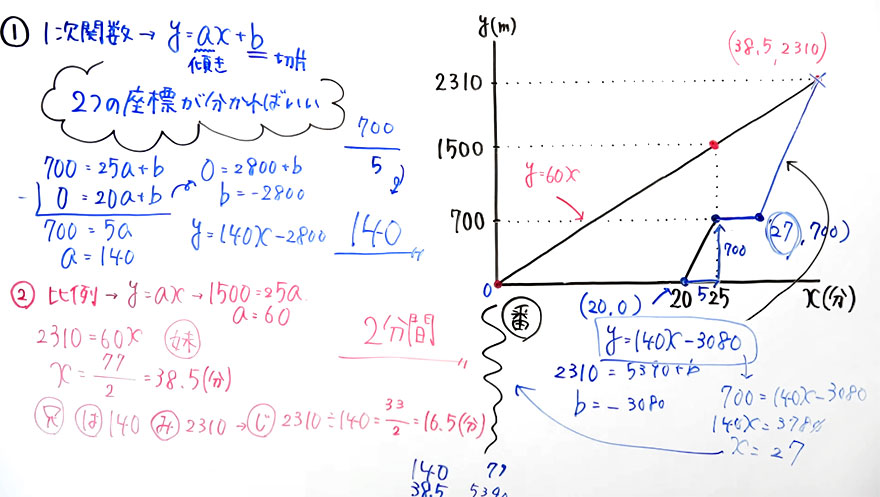 ① 1次関数 → y=ax+b
傾き 切片
2つの座標が分かればいい
700
5
140
700=25a+b
-) 0=20a+b
700=5a
a=140
0=2800+b
b=-2800
y=140x-2800
② 比例 → y=ax → 1500=25a
a=60
2310=60x 妹
x=77/2=38.5(分)
2分間
兄 は 140 み 2310 → じ 2310÷140=33/2=16.5(分)
y(m)
(38.5, 2310)
2310
1500
y=60x
700
700
(27, 700)
0
20 5 25 x(分)
(20,0)
番
y=140x-3080
2310=5390+b
b=-3080
700=140x-3080
140x=3780
x=27
140 77
38.5 5390